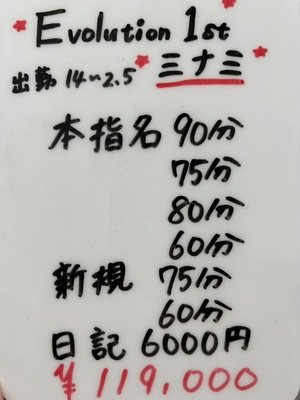 Evolution 1st
出勤 14~2.5 ミナミ
本指名 90分
75分
80分
60分
新規 75分
60分
日記 6000円
¥119,000